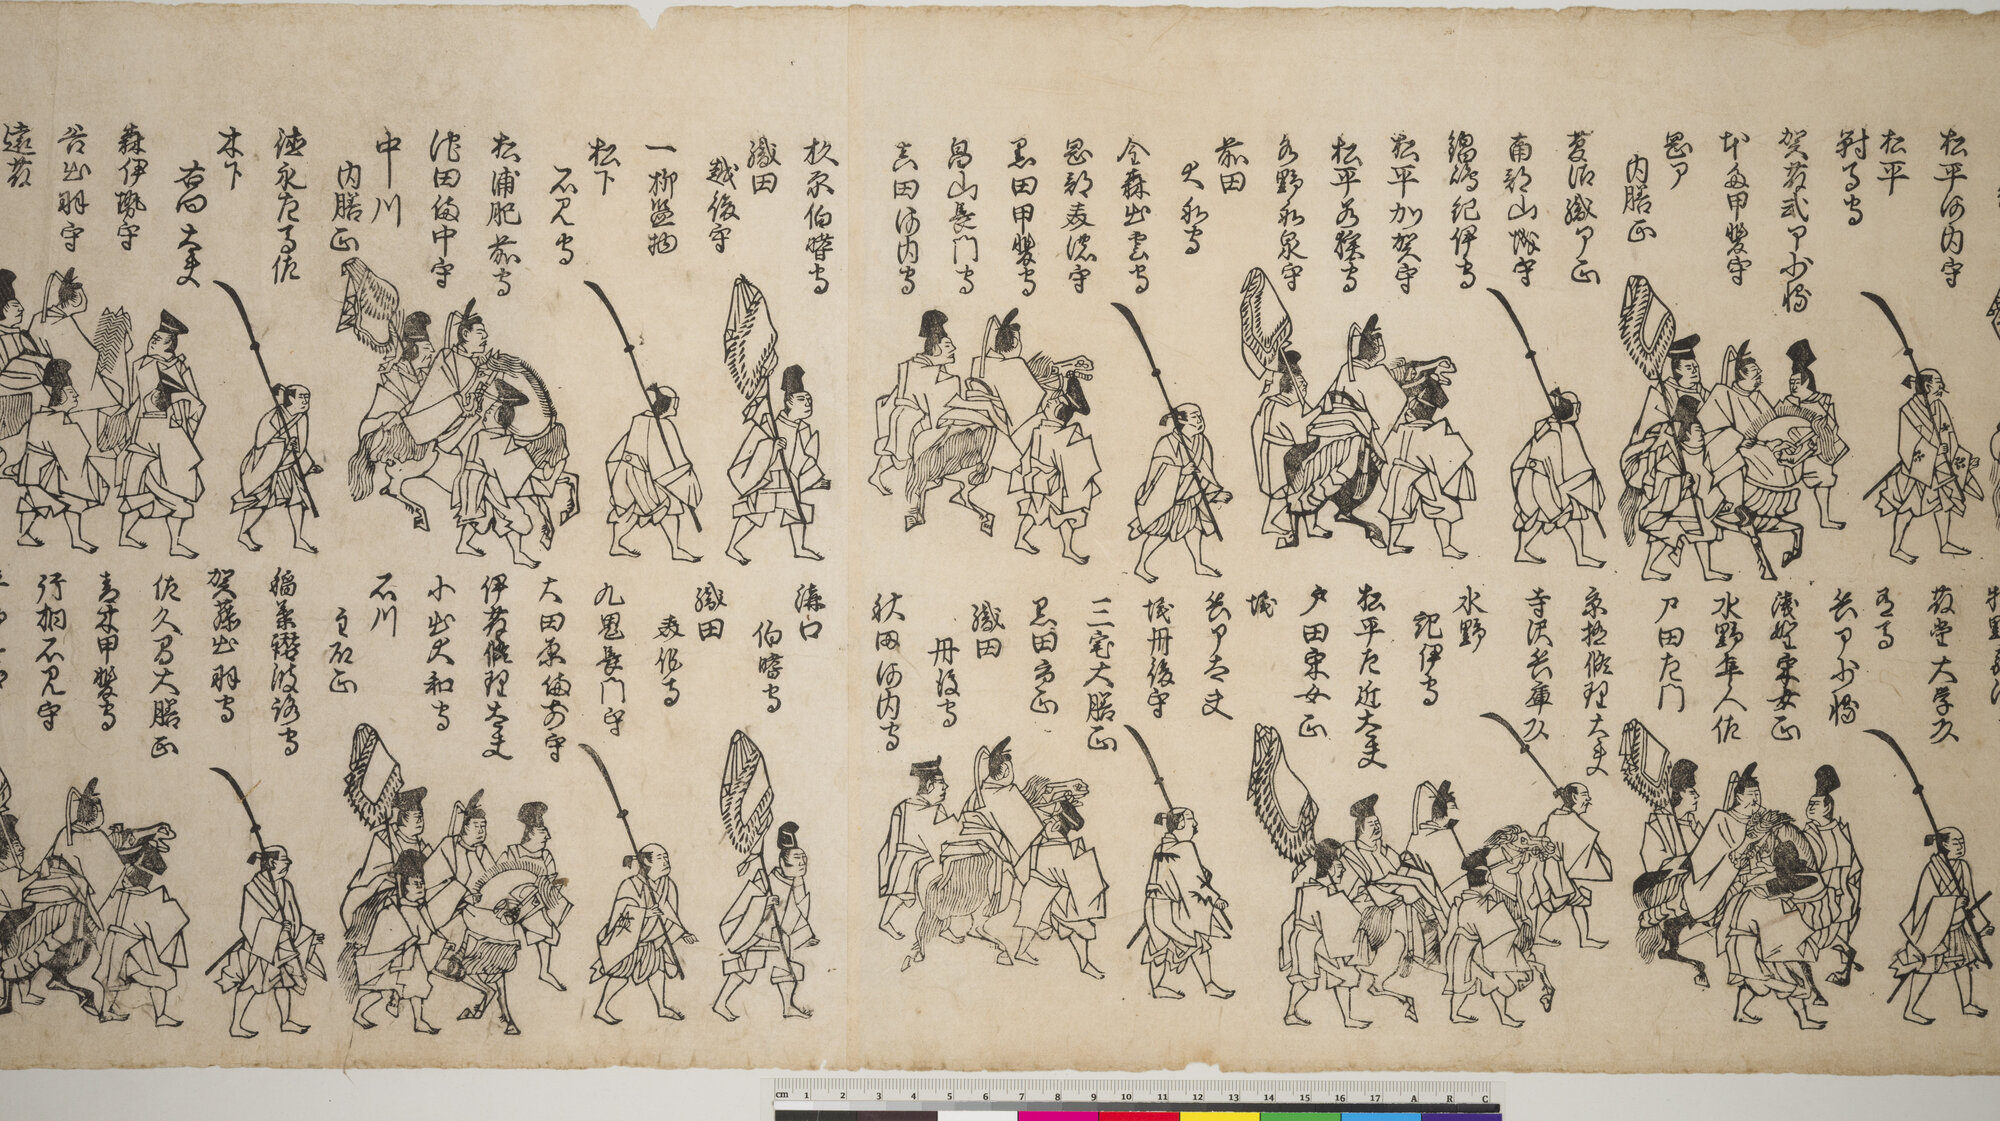 松平河内守
松平
対馬守
賀藤式ア少将
本多甲斐守
岡ア
内膳正
菱沼織ア正
南部山城守
鍋嶋紀伊守
松平加賀守
松平若狭守
水野和泉守
前田
大和守
金森出雲守
岡部美濃守
黒田甲斐守
畠山長門守
真田河内守
杉原伯耆守
織田
越後守
一柳監物
松下
石見守
松浦肥前守
池田備中守
中川
内膳正
徳永左馬佐
木下
右衛門大夫
森伊勢守
谷出羽守
遠藤
藤堂大学頭
有馬
兵ア少将
浅野采女正
水野隼人佐
戸田左門
京極修理大夫
寺沢兵庫頭
水野
記伊守
松平左近大夫
戸田采女正
堀
兵ア大夫
堀丹後守
三宅大膳正
織田
丹後守
秋田河内守
溝口
伯耆守
織田
美作守
九鬼長門守
大田原備前守
伊藤修理大夫
小出大和守
石川
主殿正
稲葉淡路守
賀藤出羽守
佐久間大膳正
青木甲斐守
片桐石見守